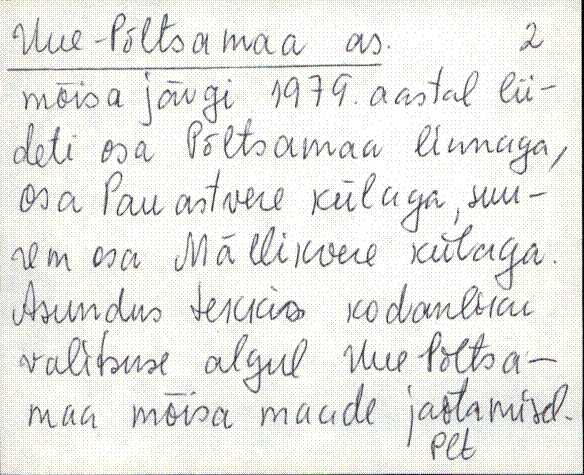 Uue-Põltsamaa as. 2
mõisa järgi 1979. aastal lii-
deti osa Põltsamaa linnaga,
osa Pauastvere külaga, suu-
rem osa Mällikvere külaga.
Asundus tekkis kodanliku
valitsuse algul Uue Põltsa-
maa mõisa maade jaotamisel.
Plt